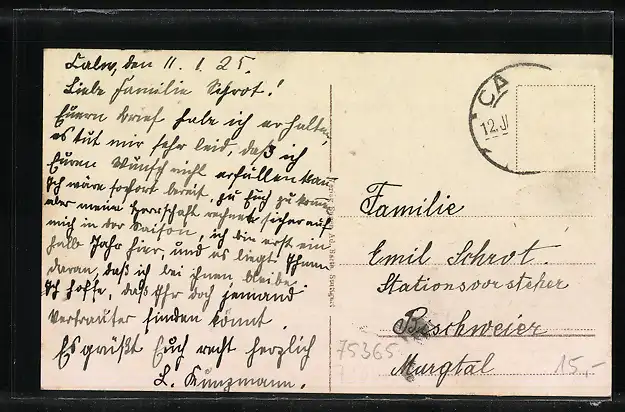 Calw, den 11. 1. 25.
Liebe Familie Schrot!
Euern Brief habe ich erhalten,
es tut mir sehr leid, daß ich
Euren Wunsch nicht erfüllen kann
Ich wäre sofort bereit, zu Euch zu kommen
aber meine Herrschaft rechnet sicher auf
mich in der Saison, ich bin erst ein
halb Jahr hier, und es liegt Ihnen
daran, daß ich bei ihnen bleibe.
Ich hoffe, daß Ihr doch jemand
Vertrauter finden könnt.
Es grüßt Euch recht herzlich
L. Kunzmann.
CA
12.
Familie
Emil Schrot.
Stationsvorsteher
Bischweier
Murgtal
75365
15,-